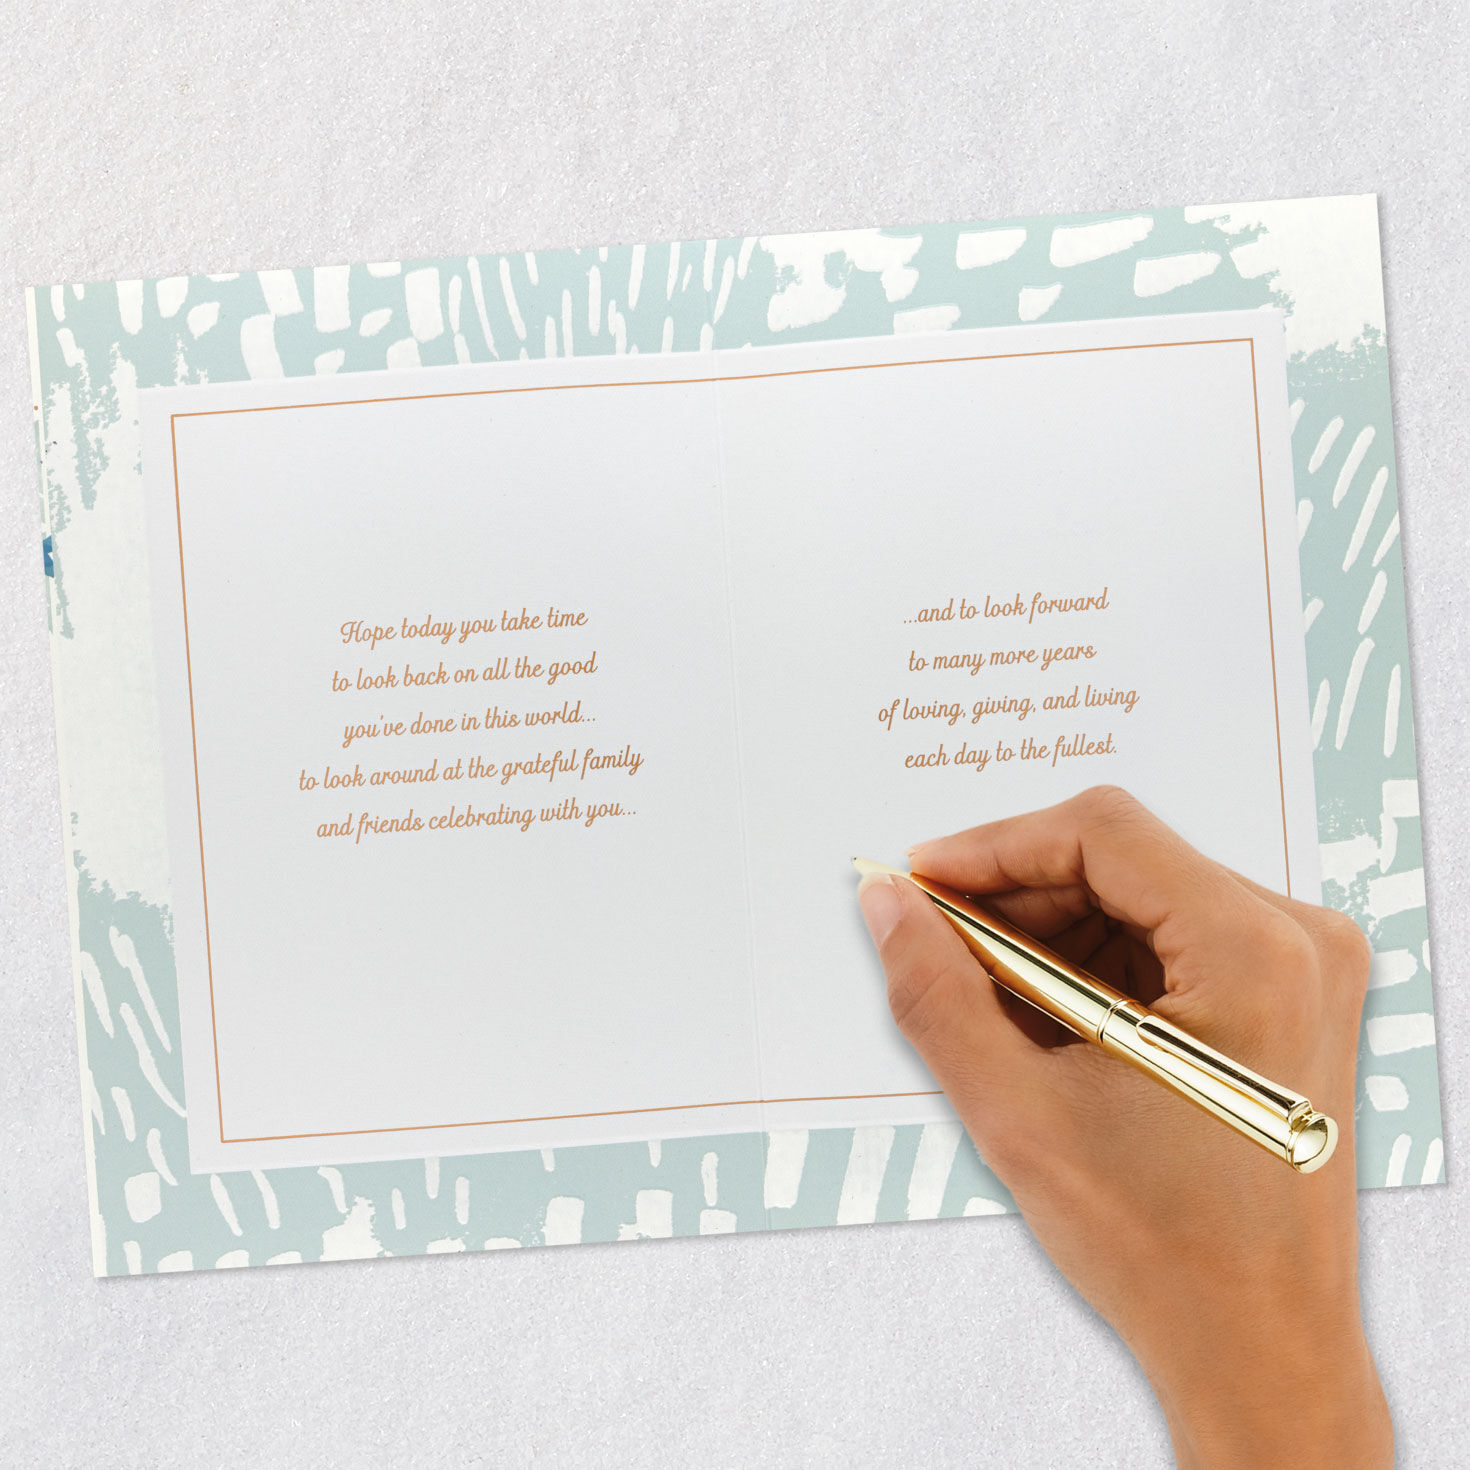 Hope today you take time
to look back on all the good
you've done in this world...
to look around at the grateful family
and friends celebrating with you...
...and to look forward
to many more years
of loving, giving, and living
each day to the fullest.